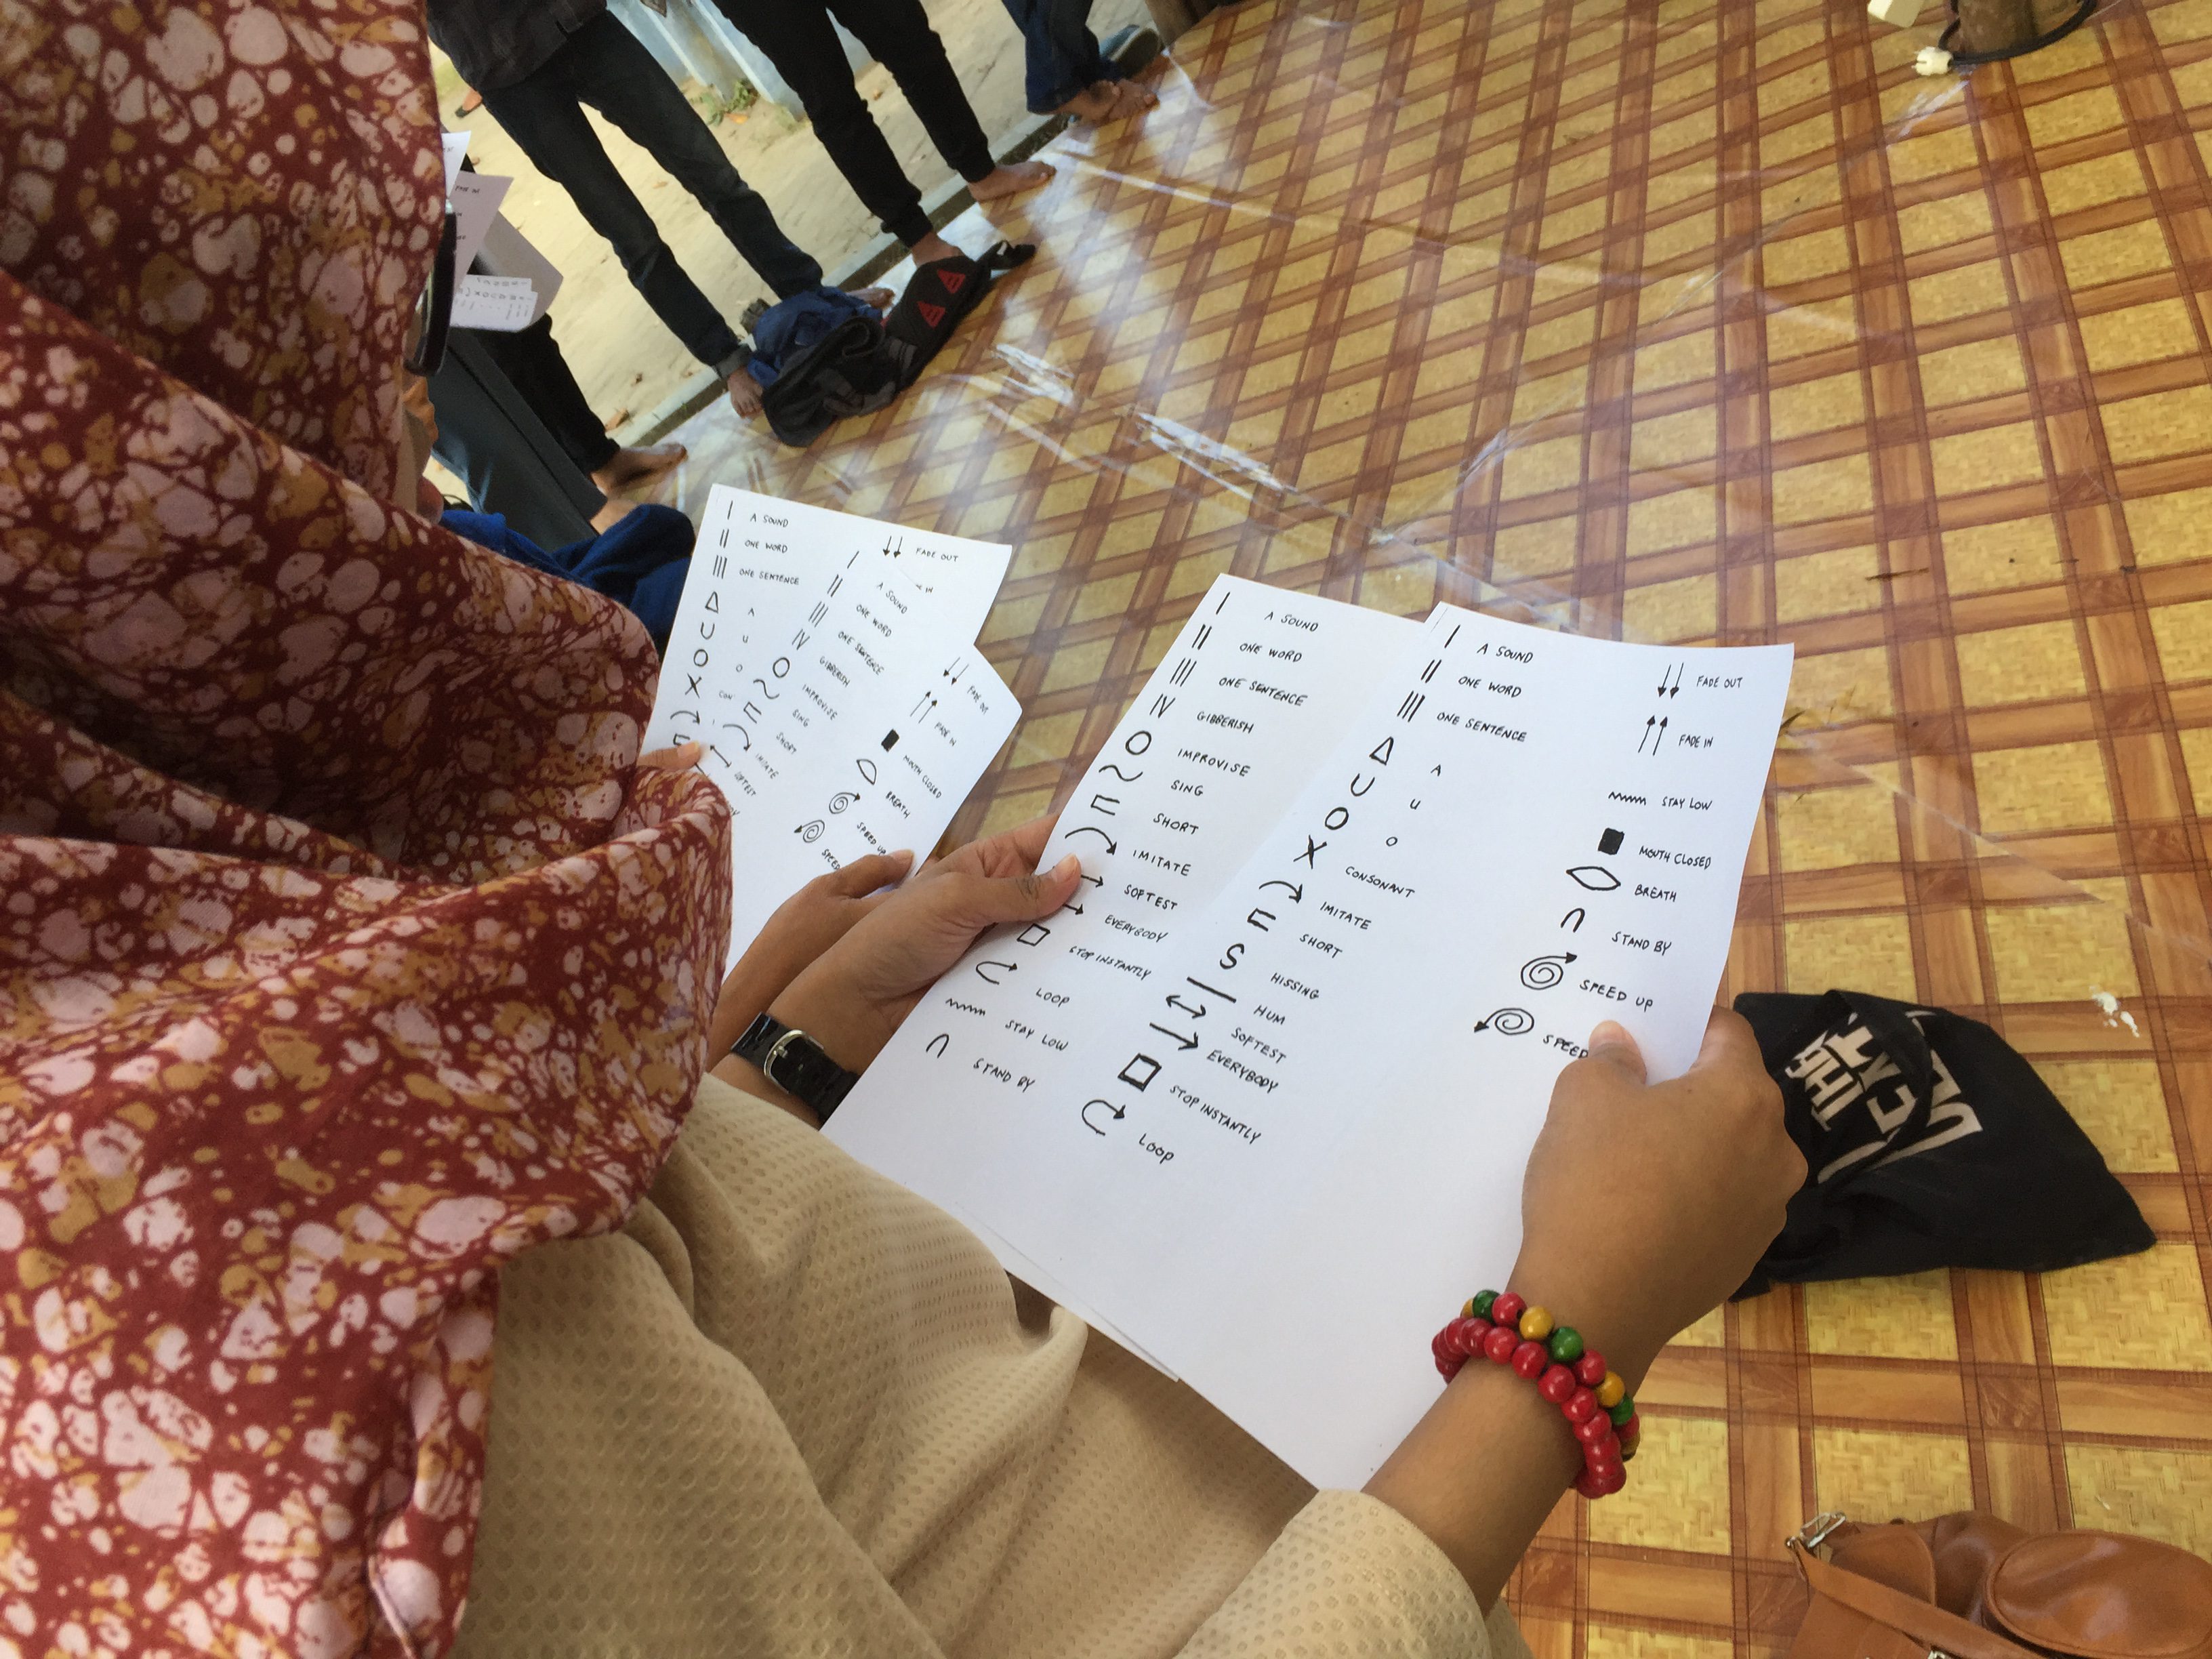 A SOUND
ONE WORD
ONE SENTENCE
A
U
O
CON
FADE OUT
A SOUND
ONE WORD
ONE SENTENCE
GIBBERISH
IMPROVISE
SING
SHORT
IMITATE
SOFTEST
FADE OUT
FADE IN
MOUTH CLOSED
BREATH
SPEED UP
SPEED
A SOUND
ONE WORD
ONE SENTENCE
GIBBERISH
IMPROVISE
SING
SHORT
IMITATE
SOFTEST
EVERYBODY
STOP INSTANTLY
LOOP
STAY LOW
STAND BY
A SOUND
ONE WORD
ONE SENTENCE
A
U
O
CONSONANT
IMITATE
SHORT
S HISSING
HUM
SOFTEST
EVERYBODY
STOP INSTANTLY
LOOP
FADE OUT
FADE IN
STAY LOW
MOUTH CLOSED
BREATH
STAND BY
SPEED UP
SPEED
THE